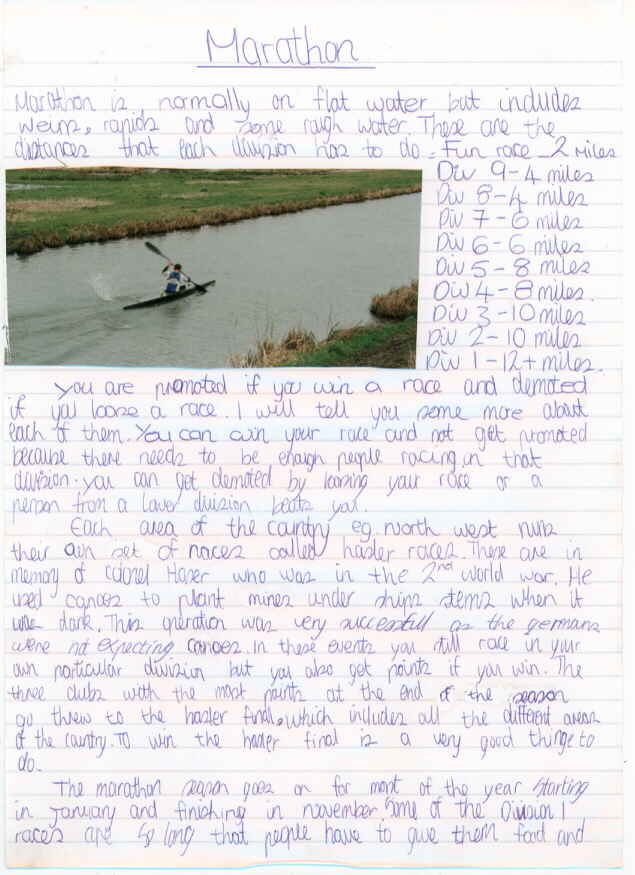 Marathon
Marathon is normally on flat water but includes
weirs, rapids and some rough water. These are the
distances that each division has to do = Fun race - 2 miles
Div 9 - 4 miles
Div 8 - 4 miles
Div 7 - 6 miles
Div 6 - 6 miles
Div 5 - 8 miles
Div 4 - 8 miles.
Div 3 - 10 miles
Div 2 - 10 miles
Div 1 - 12+ miles.
You are promoted if you win a race and demoted
if you loose a race. I will tell you some more about
each of them. You can win your race and not get promoted
because there needs to be enough people racing in that
division. you can get demoted by loosing your race or a
person from a lower division beats you.
Each area of the country eg. north west runs
their own set of races called hasler races. These are in
memory of colonel Hasler who was in the 2nd world war. He
used canoes to plant mines under ships stems when it
was dark. This operation was very successfull as the germans
were not expecting canoes. in these events you still race in your
own particular division but you also get points if you win. The
three clubs with the most points at the end of the season
go threw to the hasler final, which includes all the different areas
of the country. To win the hasler final is a very good thing to
do.
The marathon season goes on for most of the year starting
in january and finishing in november. Some of the Division 1
races are so long that people have to give them food and